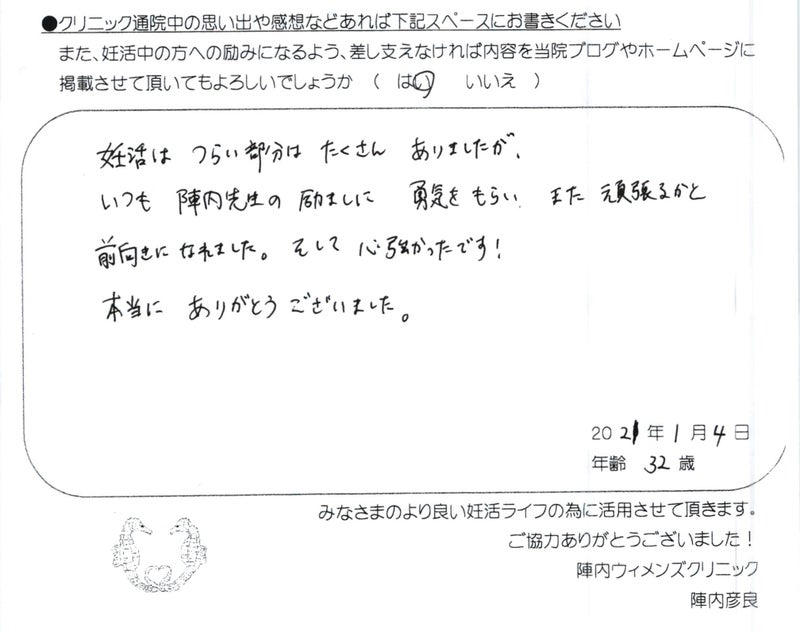 ●クリニック通院中の思い出や感想などあれば下記スペースにお書きください
また、妊活中の方への励みになるよう、差し支えなければ内容を当院ブログやホームページに
掲載させて頂いてもよろしいでしょうか （ はい いいえ ）
妊活は つらい部分は たくさん ありましたが、
いつも 陣内先生の 励ましに 勇気を もらい、また 頑張るかと
前向きに なれました。そして 心強かったです！
本当に ありがとう ございました。
2021年1月4日
年齢 32歳
みなさまのより良い妊活ライフの為に活用させて頂きます。
ご協力ありがとうございました！
陣内ウィメンズクリニック
陣内彦良